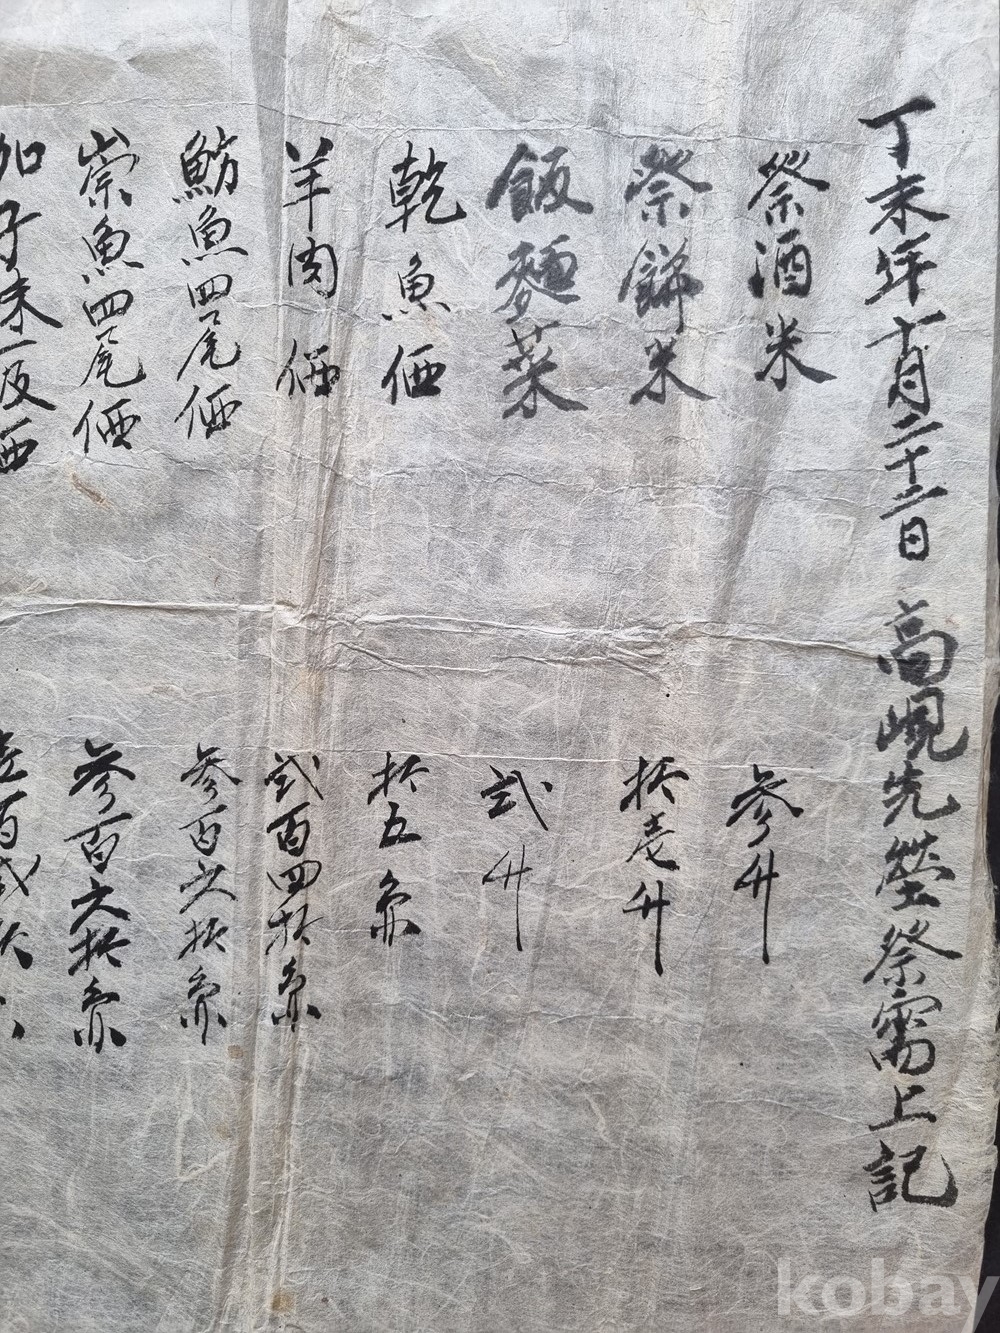 丁未年十月二十二日 高峴先塋祭需上記
祭酒米 參升
祭餠米 拾壱升
飯麵菜 弍升
乾魚価 拾五兩
羊肉価 弍百四拾兩
魴魚四尾価 參百六拾兩
崇魚四尾価 參百六拾兩
加子未
kobay